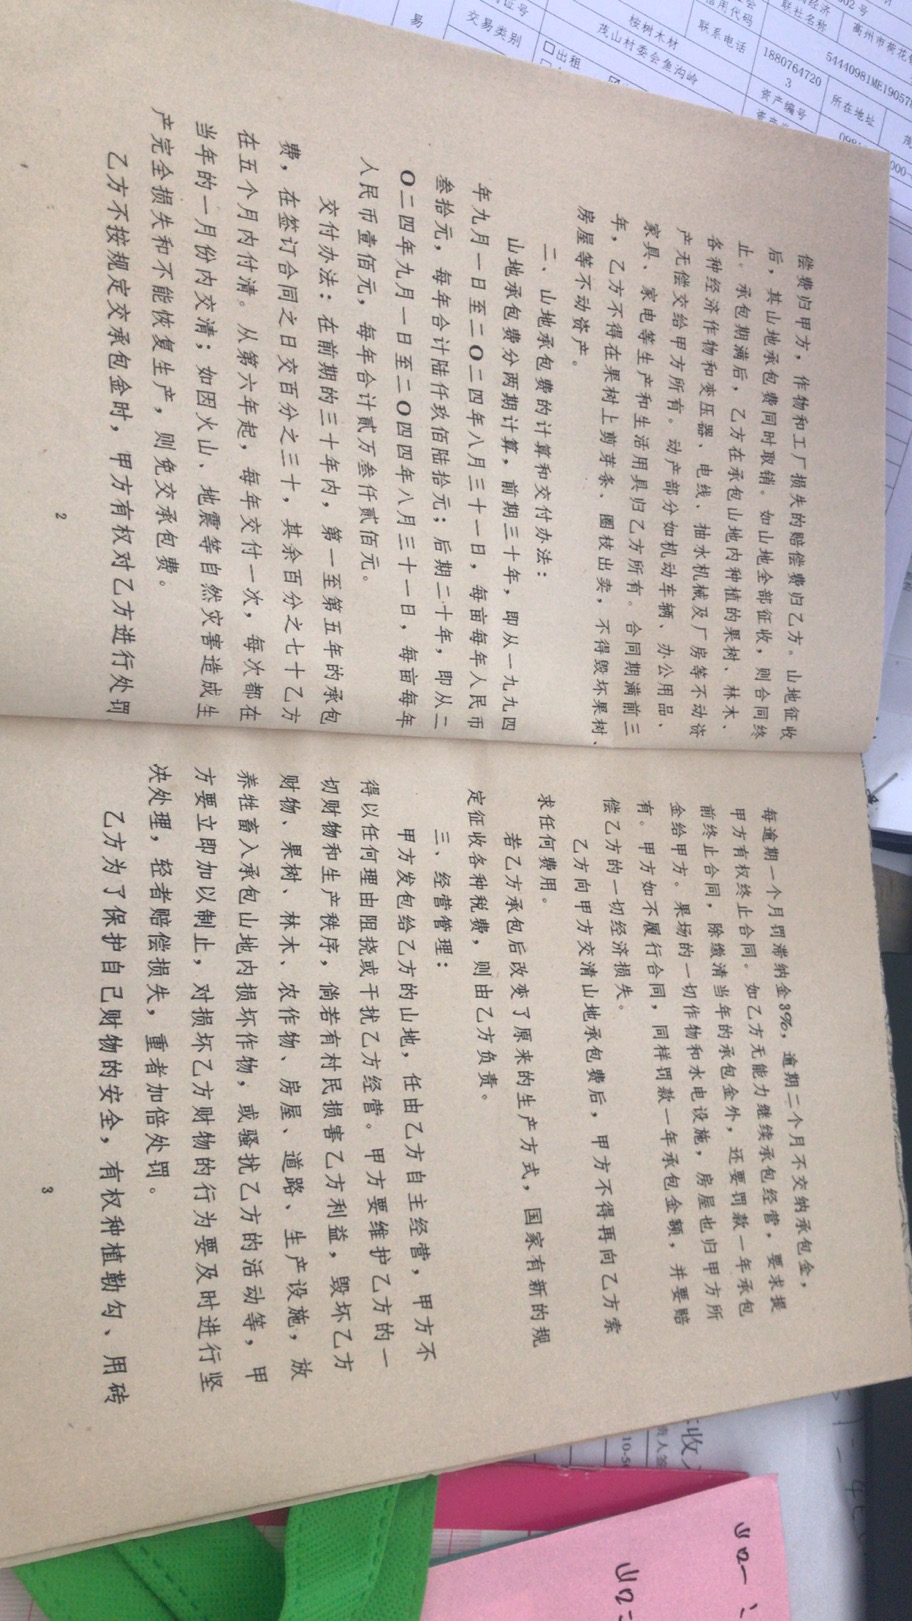 偿费归甲方，作物和工厂损失的赔偿费归乙方。山地征收
后，其山地承包费同时取销。如山地全部征收，则合同终
止。承包期满后，乙方在承包山地内种植的果树、林木、
各种经济作物和变压器、电线、抽水机械及厂房等不动资
产无偿交给甲方所有。动产部分如机动车辆、办公用品、
家具、家电等生产和生活用具归乙方所有。合同期满前三
年，乙方不得在果树上剪芽条、圈枝出卖，不得毁坏果树、
房屋等不动资产。
二、山地承包费的计算和交付办法：
山地承包费分两期计算，前期三十年，即从一九九四
年九月一日至二O二四年八月三十一日，每亩每年人民币
叁拾元，每年合计陆仟玖佰陆拾元；后期二十年，即从二
O二四年九月一日至二O四四年八月三十一日，每亩每年
人民币壹佰元，每年合计贰万叁仟贰佰元。
交付办法：在前期的三十年内，第一至第五年的承包
费，在签订合同之日交百分之三十，其余百分之七十乙方
在五个月内付清。从第六年起，每年交付一次，每次都在
当年的一月份内交清；如因火山、地震等自然灾害造成生
产完全损失和不能恢复生产，则免交承包费。
乙方不按规定交承包金时，甲方有权对乙方进行处罚
2
每逾期一个月罚滞纳金3%，逾期二个月不交纳承包金，
甲方有权终止合同。如乙方无能力继续承包经营，要求提
前终止合同，除缴清当年的承包金外，还要罚款一年承包
金给甲方。果场的一切作物和水电设施，房屋也归甲方所
有。甲方如不履行合同，同样罚款一年承包金额，并要赔
偿乙方的一切经济损失。
乙方向甲方交清山地承包费后，甲方不得再向乙方索
求任何费用。
若乙方承包后改变了原来的生产方式，国家有新的规
定征收各种税费，则由乙方负责。
三、经营管理：
甲方发包给乙方的山地，任由乙方自主经营，甲方不
得以任何理由阻挠或干扰乙方经营。甲方要维护乙方的一
切财物和生产秩序，倘若有村民损害乙方利益，毁坏乙方
财物、果树、林木、农作物、房屋、道路、生产设施，放
养牲畜入承包山地内损坏作物，或骚扰乙方的活动等，甲
方要立即加以制止，对损坏乙方财物的行为要及时进行坚
决处理，轻者赔偿损失，重者加倍处罚。
乙方为了保护自己财物的安全，有权种植勒勾、用砖
3
联社名称
联系电话
1880764720
3
54440981ME19057
所在地址
资产编号
桉树木材
茂山村委会鱼沟岭
交易类别
出租